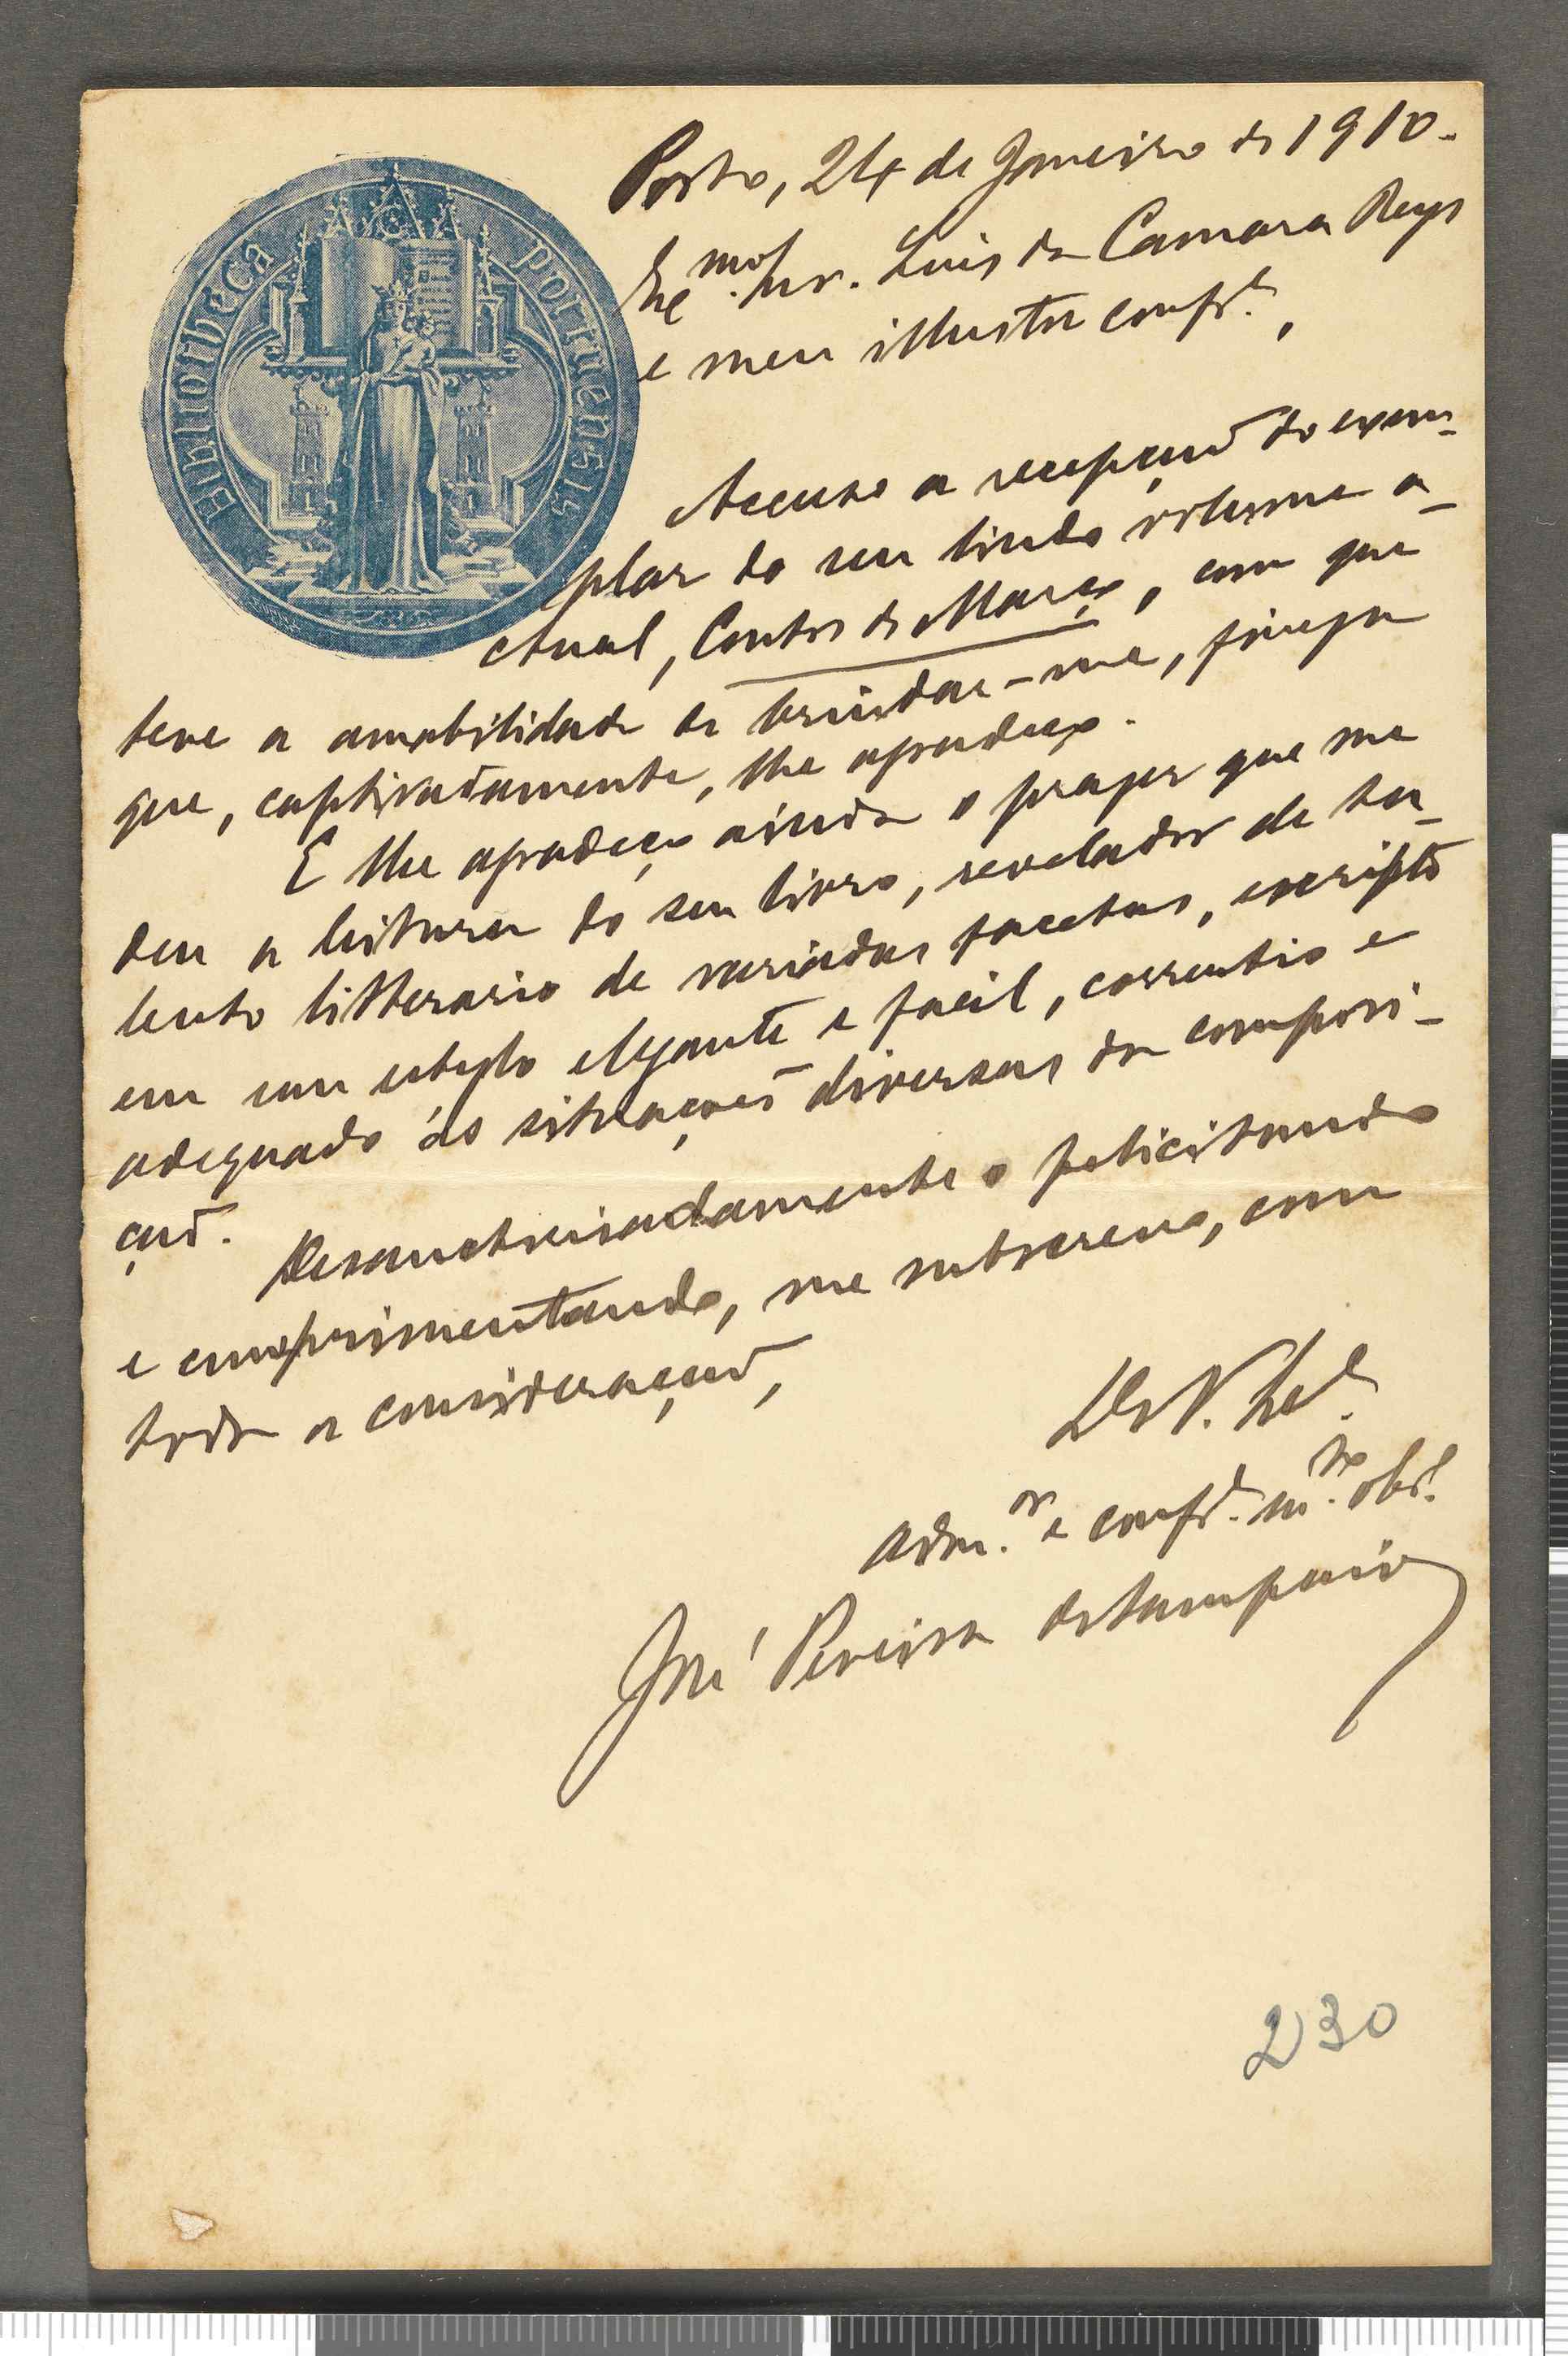 Bibliotheca Portuensis
Porto, 24 de Janeiro de 1910.
Exmo. snr. Luis da Camara Reys
e meu illustre confr.e,
Accuso a recepção do exem-
plar do seu lindo volume a-
ctual, Contos de Março, com que
teve a amabilidade de brindar-me, fineza
que, captivadamente, lhe agradeço.
E lhe agradeço ainda o prazer que me
deu a leitura do seu livro, revelador de ta-
lento litterario de variadas facetas, escripto
em um estylo elegante e facil, correntio e
adequado ás situações diversas da composi-
ção.
felicitando
e cumprimentando, me subscrevo, com
toda a consideração,
De V.
adm.or e confr.e m.to obr.
José Pereira de Sampaio
230